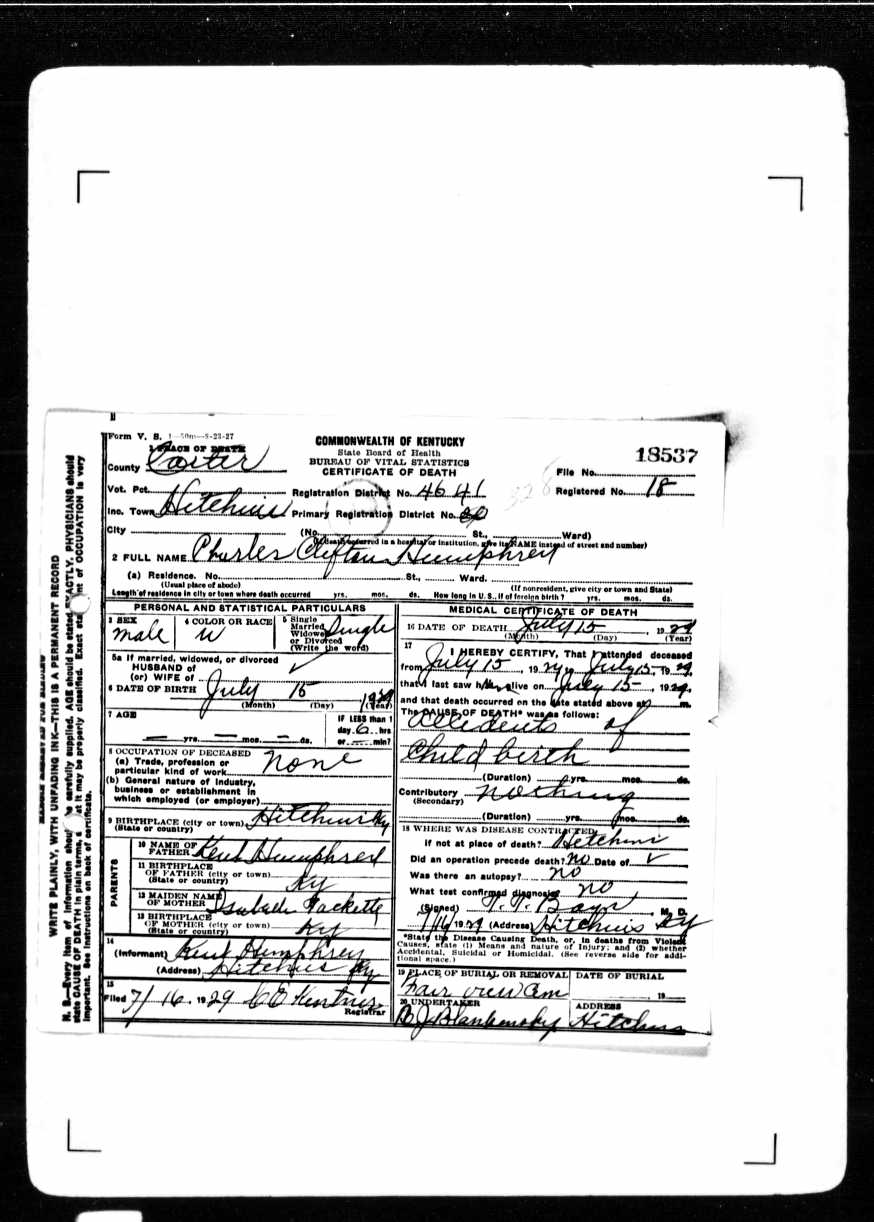 Form V. S. 1-50m-5-23-27
COMMONWEALTH OF KENTUCKY
State Board of Health
BUREAU OF VITAL STATISTICS
CERTIFICATE OF DEATH
18537
1 PLACE OF DEATH
County Carter
File No.
Vot. Pct. Registration District No. 4641 Registered No. 18
Inc. Town Hitchins Primary Registration District No.
City (No. St., Ward)
(If death occurred in a hospital or institution, give its NAME instead of street and number)
2 FULL NAME Charles Clifton Humphrey
(a) Residence. No. St., Ward.
(Usual place of abode) (If nonresident, give city or town and State)
Length of residence in city or town where death occurred yrs. mos. ds. How long in U. S., if of foreign birth? yrs. mos. ds.
PERSONAL AND STATISTICAL PARTICULARS
3 SEX 4 COLOR OR RACE 5 Single
Married
Widowed
or Divorced
(Write the word)
male W Single
5a If married, widowed, or divorced
HUSBAND of
(or) WIFE of
6 DATE OF BIRTH July 15 1929
(Month) (Day) (Year)
7 AGE
yrs. mos. ds.
IF LESS than 1
day 6 hrs
or min?
8 OCCUPATION OF DECEASED
(a) Trade, profession or
particular kind of work none
(b) General nature of industry,
business or establishment in
which employed (or employer)
9 BIRTHPLACE (city or town) Hitchins Ky
(State or country)
PARENTS
10 NAME OF
FATHER Humphrey
11 BIRTHPLACE
OF FATHER (city or town)
(State or country) Ky
12 MAIDEN NAME
OF MOTHER
13 BIRTHPLACE
OF MOTHER (city or town)
(State or country) Ky
14
(Informant) Humphrey
(Address) Hitchins Ky
15
Filed 7/16. 1929
Registrar
MEDICAL CERTIFICATE OF DEATH
16 DATE OF DEATH July 15, 1929
(Month) (Day) (Year)
17 I HEREBY CERTIFY, That I attended deceased
from July 15, 1929, July 15, 1929,
that I last saw h alive on July 15, 1929,
and that death occurred on the date stated above at m.
The CAUSE OF DEATH* was as follows:
accidents of
Child birth
(Duration) yrs. mos. ds.
Contributory nothing
(Secondary)
(Duration) yrs. mos. ds.
18 WHERE WAS DISEASE CONTRACTED
if not at place of death? Hitchins
Did an operation precede death? no Date of
Was there an autopsy? no
What test confirmed diagnosis? no
(Signed) M. D.
7/16 1929 (Address) Hitchins Ky
*State the Disease Causing Death, or, in deaths from Violent
Causes, state (1) Means and nature of Injury; and (2) whether
Accidental, Suicidal or Homicidal. (See reverse side for addi-
tional space.)
19 PLACE OF BURIAL OR REMOVAL DATE OF BURIAL
Fair view Cem , 19
20 UNDERTAKER ADDRESS
Hitchins
WRITE PLAINLY, WITH UNFADING INK—THIS IS A PERMANENT RECORD
N. B.—Every item of information should be carefully supplied. AGE should be stated EXACTLY. PHYSICIANS should
state CAUSE OF DEATH in plain terms, at it may be properly classified. Exact statement of OCCUPATION is very
important. See instructions on back of certificate.